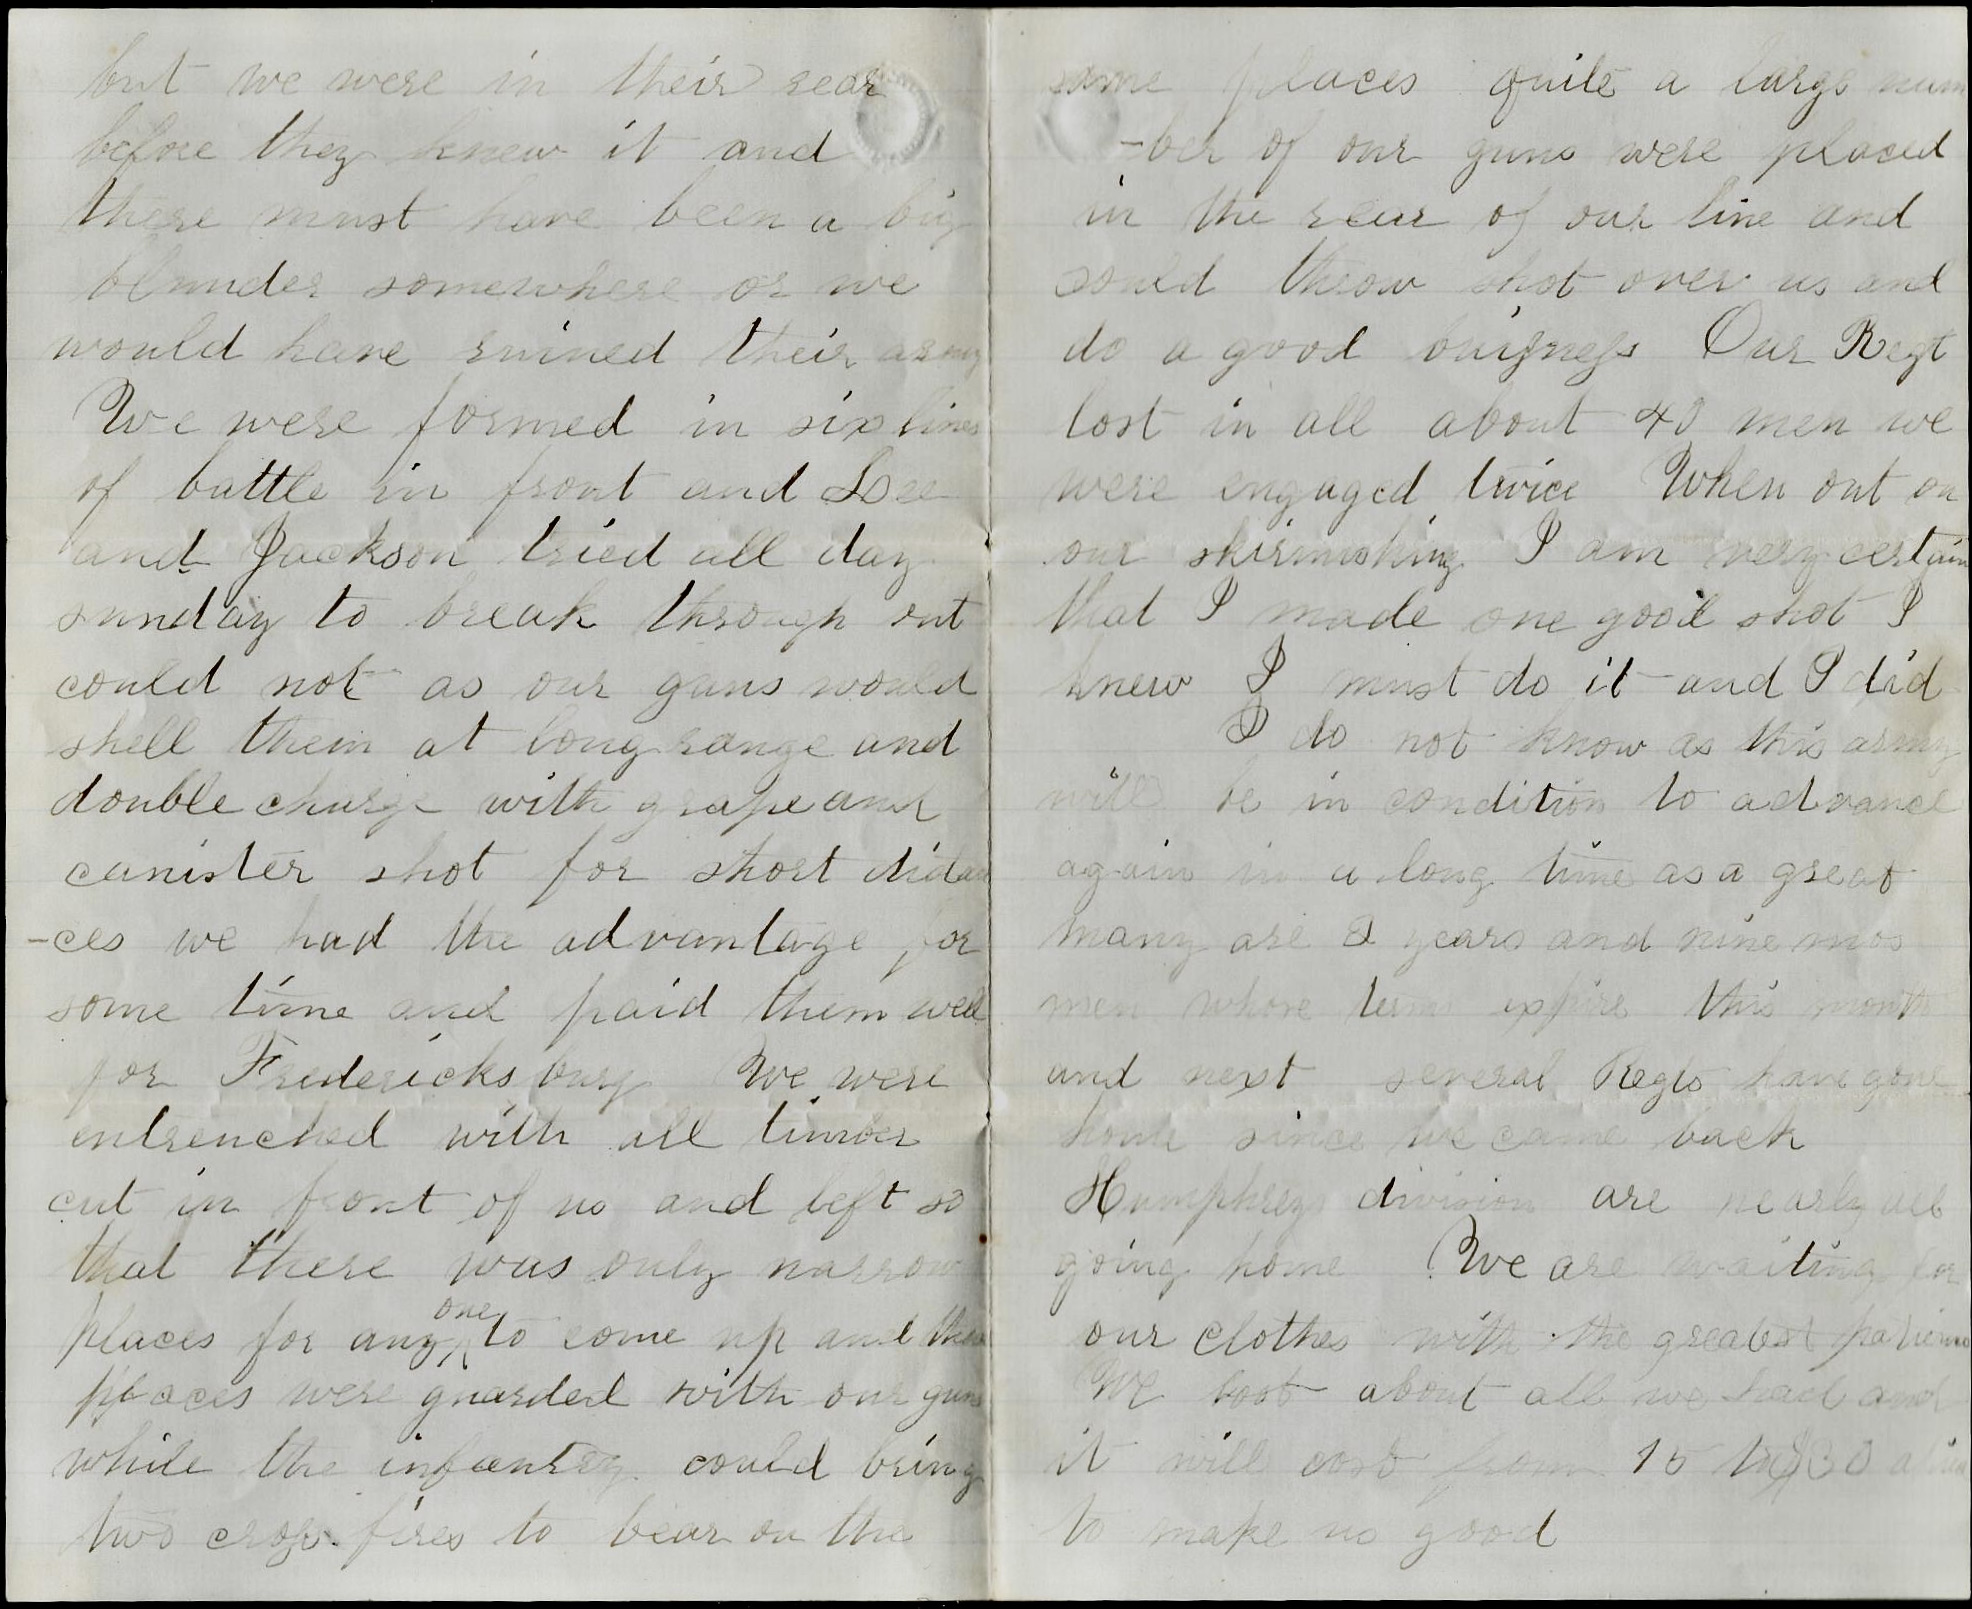 but we were in their rear
before they knew it and
there must have been a big
blunder somewhere or we
would have ruined their army
We were formed in six lines
of battle in front and Lee
and Jackson tried all day
sunday to break through out
could not as our guns would
shell them at long range and
double charge with grape and
canister shot for short distan
-ces we had the advantage for
some time and paid them well
for Fredericksburg We were
entrenched with all timber
cut in front of us and left so
that there was only narrow
places for any one to come up and these
places were guarded with our guns
while the infantry could bring
two cross fires to bear on the
same places quite a large num
-ber of our guns were placed
in the rear of our line and
could throw shot over us and
do a good buisness Our Regt
lost in all about 40 men we
were engaged twice When out on
our skirmishing I am very certain
that I made one good shot I
knew I must do it and I did
I do not know as this army
will be in condition to advance
again in a long time as a great
many are 2 years and nine mos
men whose terms expire this month
and next several Regts have gone
home since we came back
Humphreys division are nearly all
going home We are waiting for
our clothes with the greatest patience
We lost about all we had and
it will cost from 15 to $30 a
to make us good